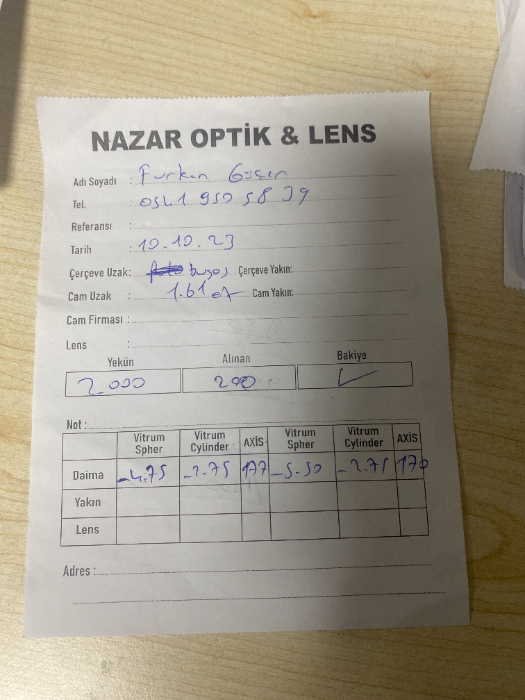 NAZAR OPTİK & LENS
Adı Soyadı : Furkan
Tel. : 0541 950 58 39
Referansı :
Tarih : 10.10.23
Çerçeve Uzak: Çerçeve Yakın:
Cam Uzak : 1.61 Cam Yakın:
Cam Firması :
Lens :
Yekün Alınan Bakiye
2.000 200 ✓
Not :
Vitrum Spher Vitrum Cylinder AXİS Vitrum Spher Vitrum Cylinder AXİS
Daima -4.75 -2.75 177 -5.50 -2.75 170
Yakın
Lens
Adres :